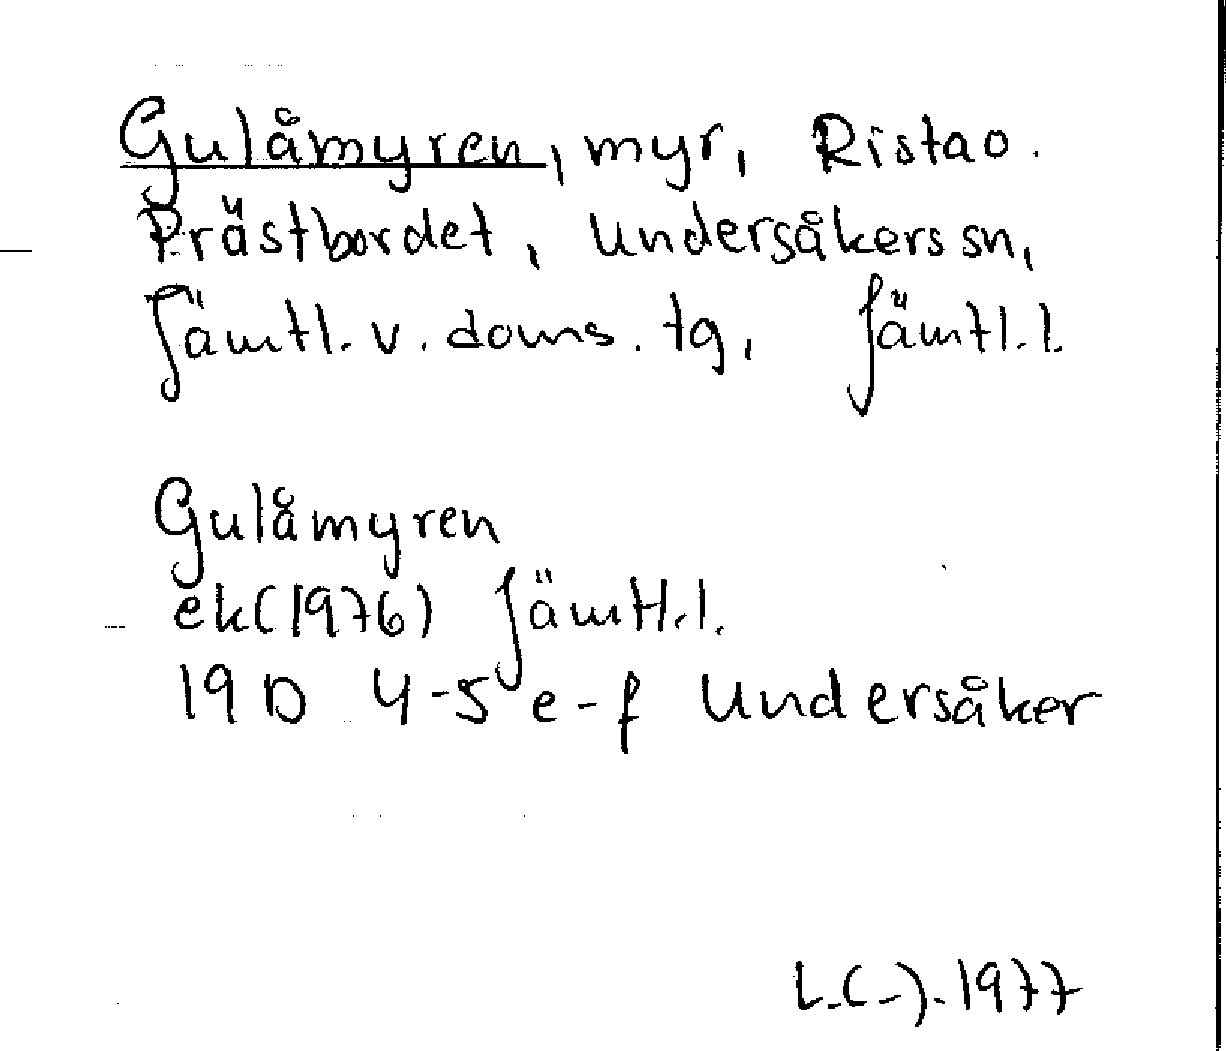 Gulåmyren, myr, Rista o.
Prästbordet, Undersåkers sn,
Jämtl. v. doms. tg, Jämtl. l.
Gulåmyren
ek (1976) Jämtl. l.
19D 4-5 e-f Undersåker
L.(-). 1977